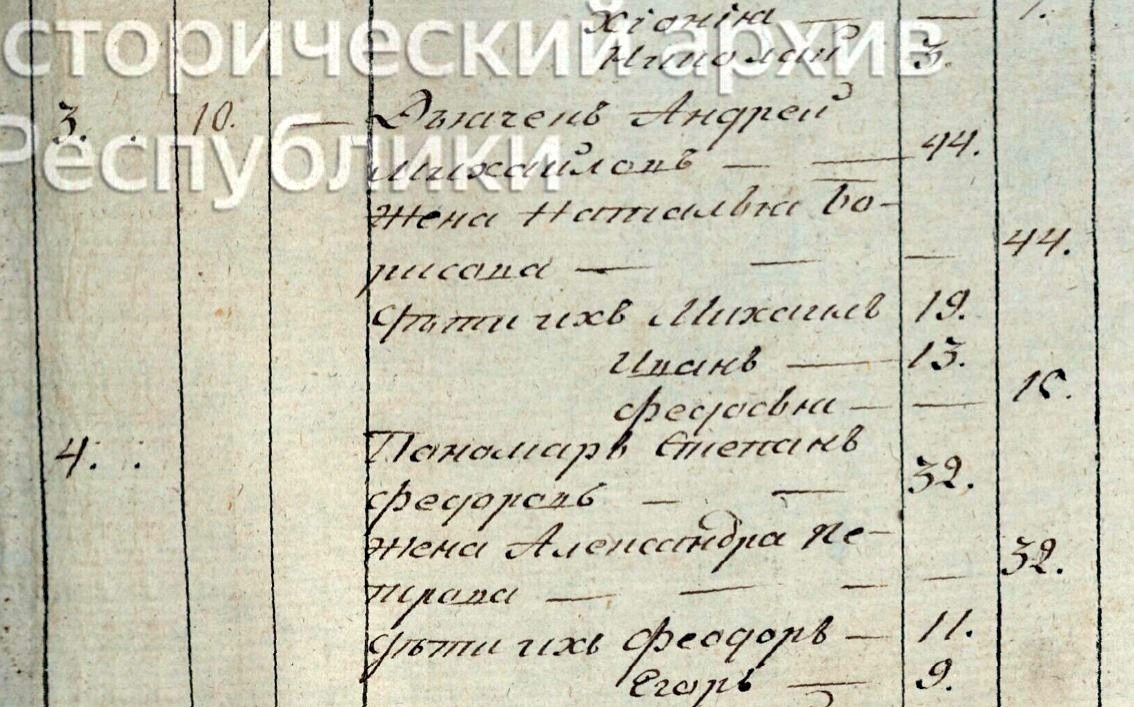 Хіонія — — 7.
Николай 3.
3. . 10. — Дьячекъ Андрей
Михайловъ — — 44.
Жена Наталья Бо-
рисова — — — 44.
Дѣти ихъ Михаилъ 19.
Иванъ — 13.
Федосья — — 16.
4. . Панамарь Степанъ
Федоровъ — — 32.
Жена Александра Пе-
трова — — — — 32.
Дѣти ихъ Феодоръ — 11.
Егоръ — 9.
сторический архив
Республики